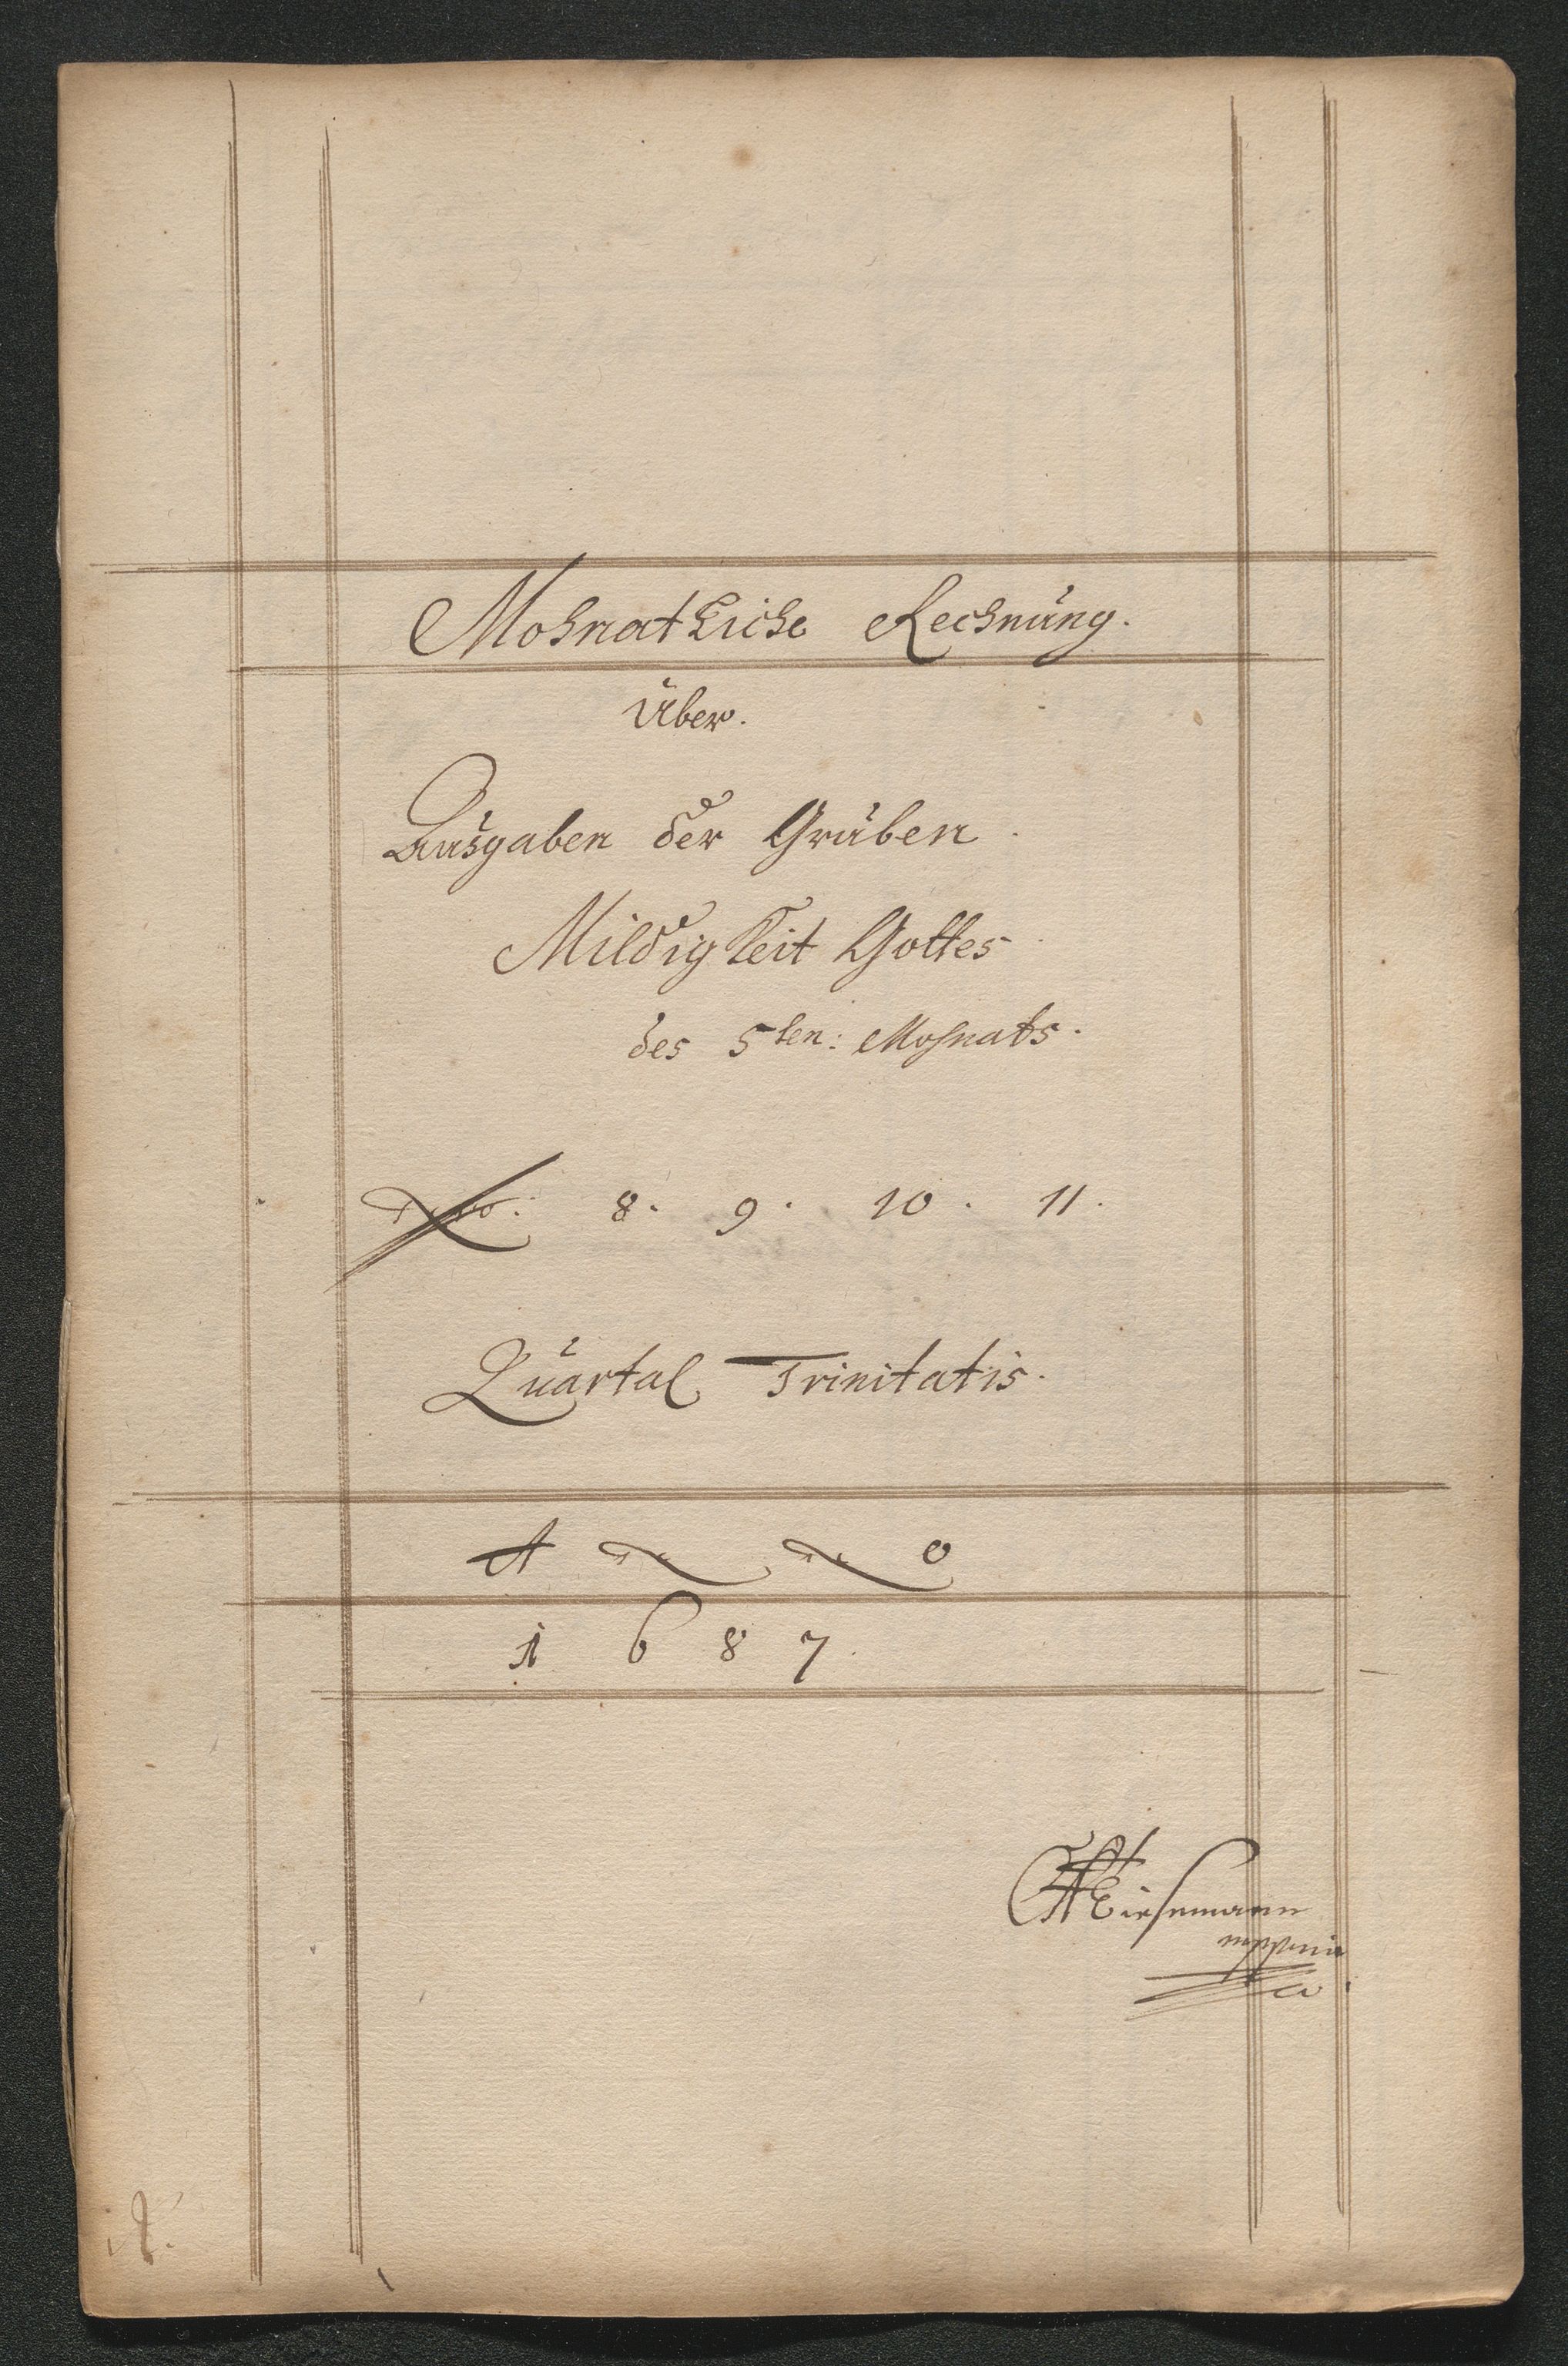 Mohnatliche Rechnung.
Über.
Ausgaben der Gruben
Mildigkeit Gottes
des 5ten: Mohnats.
No: 8. 9. 10. 11.
Quartal Trinitatis.
A N N O
1687.